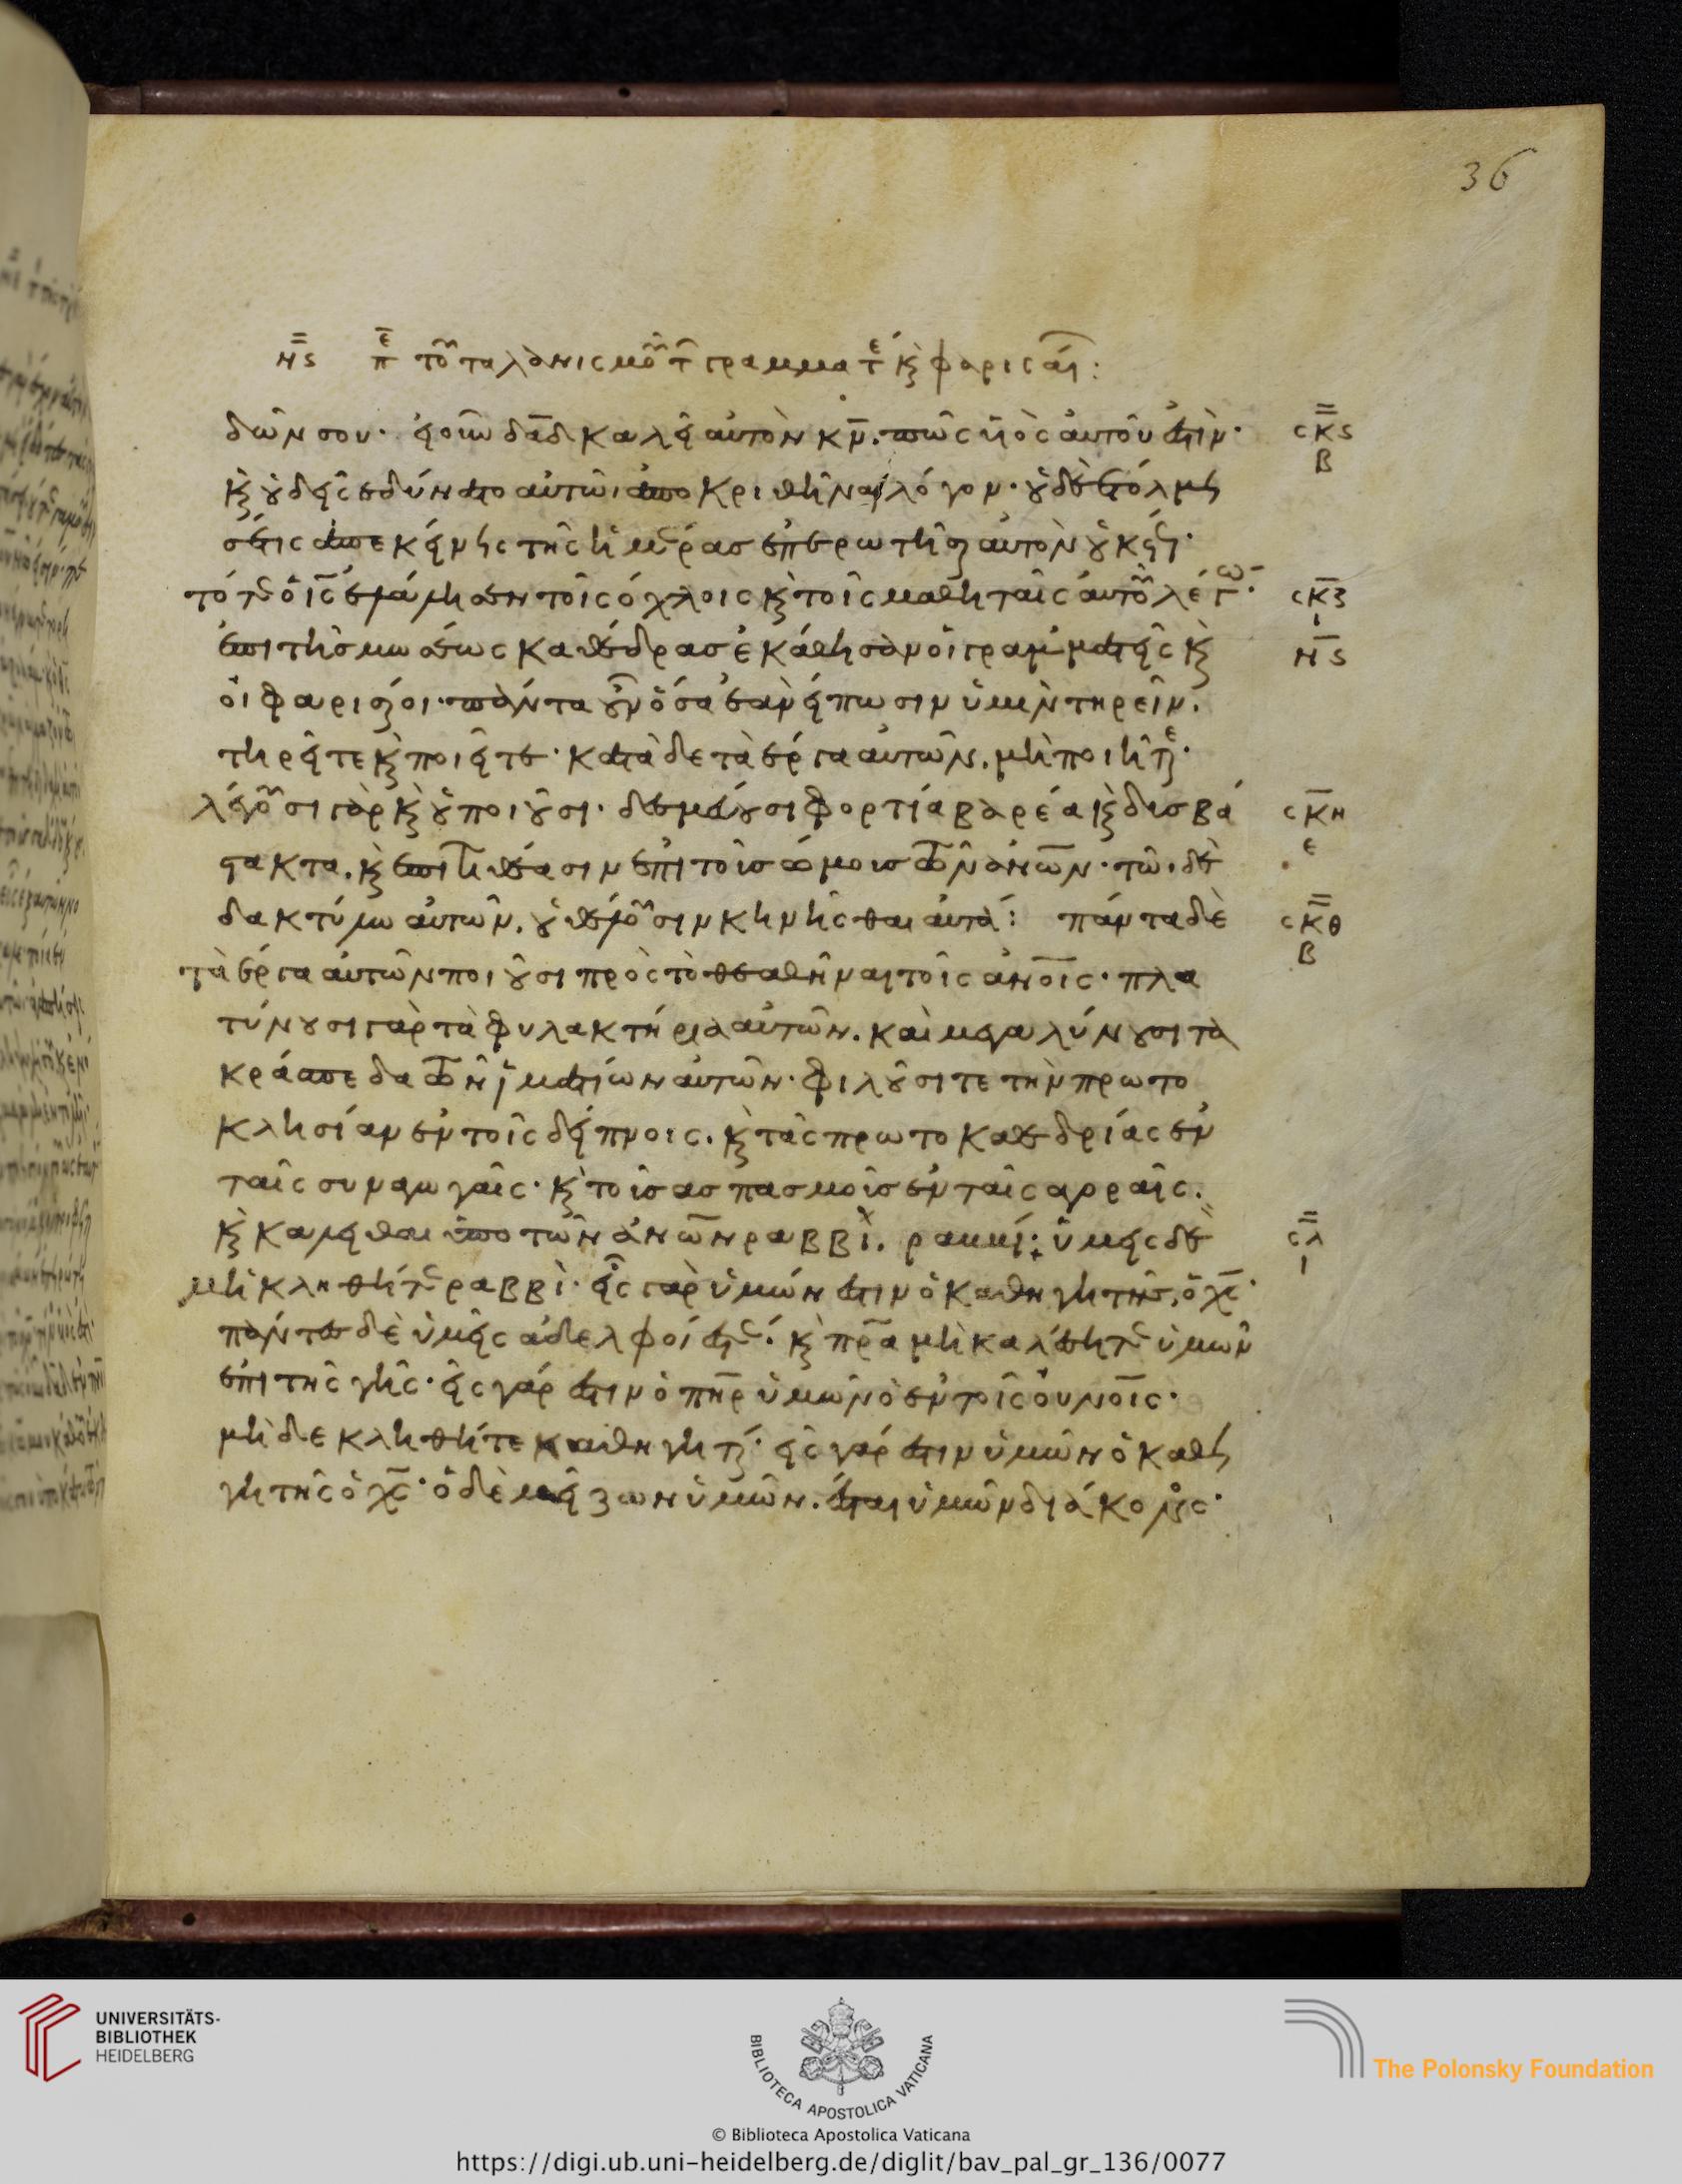 36
νϛ περ τοῦ ταλανισμοῦ τ γραμματ κ φαρισαι:
δῶν σου· εἰ οὖν δαδ καλεῖ αὐτὸν κν. πῶς υἱὸς αὐτοῦ ἐστὶν· σκϛ
β
κ οὐδεὶς ἐδύνατο αὐτῶι ἀποκριθῆναι λόγον· οὐδὲ ἐτόλμη
σέ τις ἀπεκείνης τῆς ἡμέρας ἐπερωτῆσαι αὐτὸν οὐκέτι·
τότε ὁ ις ἐλάλησεν τοῖς ὄχλοις κ τοῖς μαθηταῖς αὐτοῦ λέγων· σκζ
ι
ἐπι τῆς μωσέως καθέδρας ἐκάθησαν οἱ γραμματεῖς κ νϛ
οἱ φαρισαῖοι· πάντα οὖν ὅσα ἐὰν εἴπωσιν ὑμῖν τηρεῖν.
τηρεῖτε κ ποιεῖτε· κατὰ δε τὰ ἔργα αὐτῶν. μὴ ποιῆτε·
λέγουσι γὰρ κ οὐ ποιοῦσι· δεσμεύουσι φορτία βαρέα κ δυσβά σκη
ε
στακτα. κ ἐπιτιθέασιν ἐπὶ τοὶς ὤμοις τῶν ἀνων· τῶι δὲ
δακτύλω αὐτῶν. οὐ θέλουσιν κινῆσθαι αὐτά: πάντα δὲ σκθ
β
τὰ ἔργα αὐτῶν ποιοῦσι πρὸς τὸ θεαθῆναι τοῖς ἀνοις· πλα
τύνουσι γὰρ τὰ φυλακτήρια αὐτῶν. καὶ μεγαλύνουσι τὰ
κράσπεδα τῶν ἱματίων αὐτῶν· φιλοῦσι τε τὴν πρωτο
κλησίαν ἐν τοῖς δείπνοις. κ τὰς πρωτοκαθεδρίας ἐν
ταῖς συναγωγαῖς· κ τοὶς ασπασμοὶς ἐν ταῖς αγοραῖς.
κ καλεῖσθαι ὑπο τῶν ἀνων ραββὶ. ραββί: ὑμεῖς δὲ σλ
ι
μὴ κληθήτε ραββὶ· εἷς γὰρ ὑμῶν ἐστιν ὁ καθηγητὴς, ὁ χς·
πάντες δὲ ὑμεῖς ἀδελφοί ἐστε· κ πρα μὴ καλέσητε ὑμῶν
ἐπι τῆς γῆς· εἷς γάρ ἐστιν ὁ πηρ ὑμῶν ὁ ἐν τοῖς οὐνοις·
μὴδε κληθήτε καθηγηταί· εἷς γάρ ἐστιν ὑμῶν ὁ καθη
γητῆς ὁ χς· ὁ δὲ μείζων ὑμῶν. ἔσται ὑμῶν διάκονος·
UNIVERSITÄTS-
BIBLIOTHEK
HEIDELBERG
BIBLIOTECA APOSTOLICA VATICANA
The Polonsky Foundation
© Biblioteca Apostolica Vaticana
https://digi.ub.uni-heidelberg.de/diglit/bav_pal_gr_136/0077